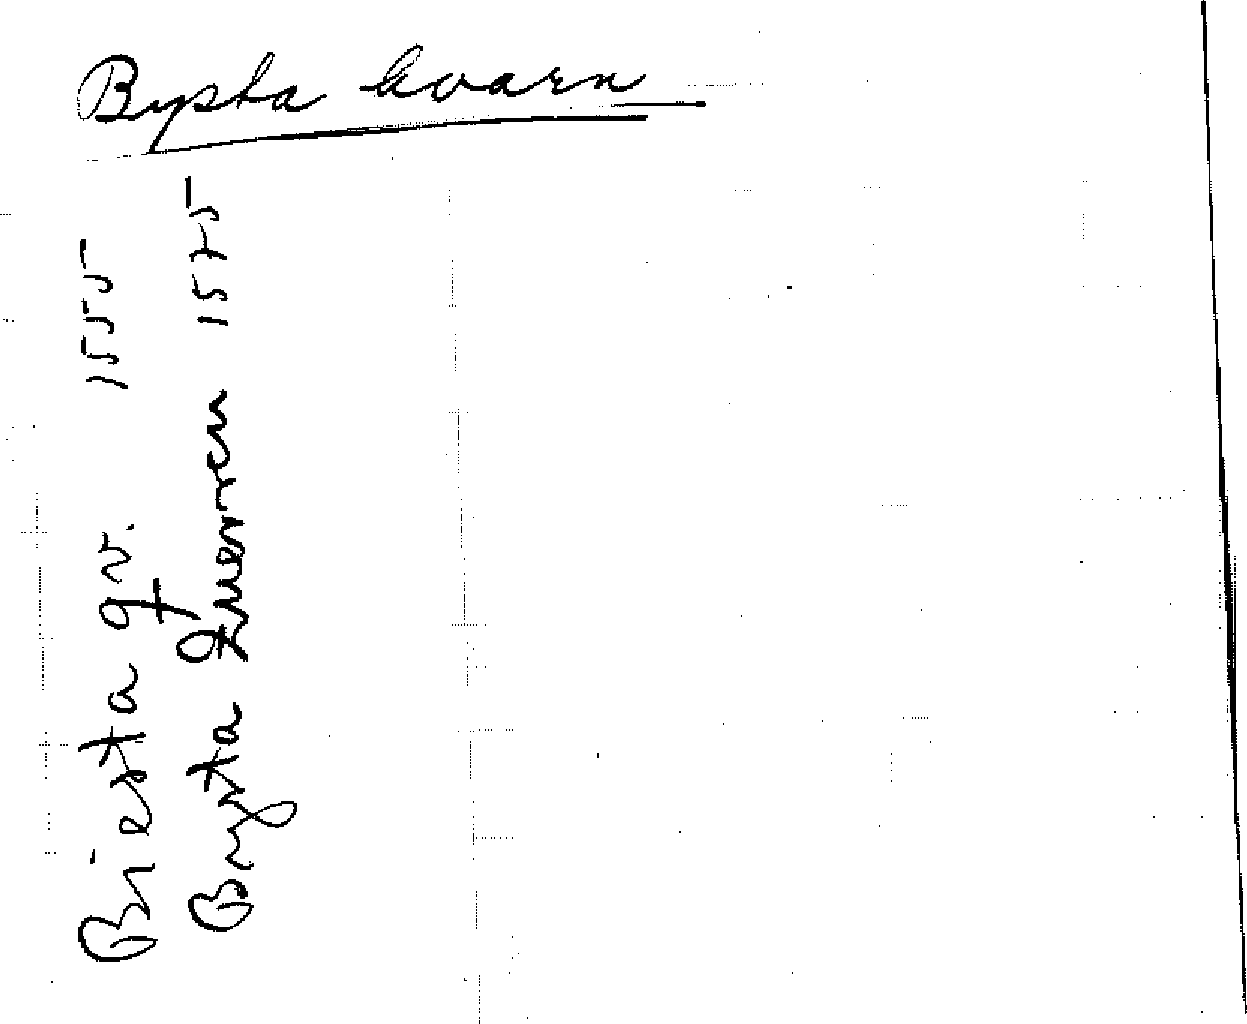 Bysta kvarn
Biesta qv. 1555
Bysta quernen 1575